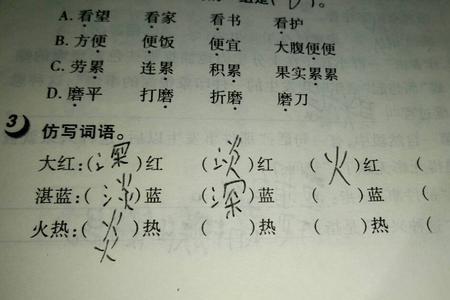 A. 看望 看家 看书 看护
B. 方便 便饭 便宜 大腹便便
C. 劳累 连累 积累 果实累累
D. 磨平 打磨 折磨 磨刀
3 仿写词语。
大红:(深)红 (淡)红 (火)红 (
湛蓝:(淡)蓝 (深)蓝 ( )蓝 (
火热:(炎)热 ( )热 ( )热 (